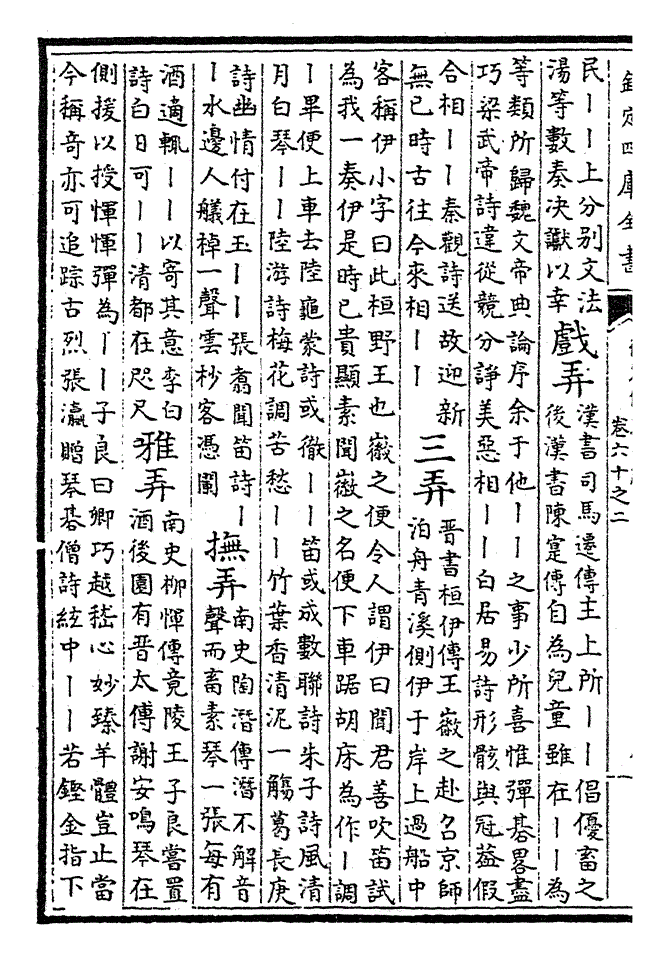 欽定四庫全書
卷六十之二
民｜｜上分别文法
湯等數奏决讞以幸
戲弄
漢書司馬遷傳主上所｜｜倡優畜之
後漢書陳寔傳自為兒童雖在｜｜為
等類所歸魏文帝典論序余于他｜｜之事少所喜惟彈碁畧盡
巧梁武帝詩違從競分諍美惡相｜｜白居易詩形骸與冠葢假
合相｜｜秦觀詩送故迎新
無已時古往今來相｜｜
三弄
晋書桓伊傳王徽之赴召京師
泊舟青溪側伊于岸上過船中
客稱伊小字曰此桓野王也徽之便令人謂伊曰聞君善吹笛試
為我一奏伊是時已貴顯素聞徽之名便下車踞胡床為作｜調
｜畢便上車去陸龜蒙詩或徹｜｜笛或成數聯詩朱子詩風清
月白琴｜｜陸游詩梅花調苦愁｜｜竹葉香清泥一觴葛長庚
詩幽情付在玉｜｜張翥聞笛詩｜
｜水邊人艤棹一聲雲杪客憑闌
撫弄
南史陶潛傳潛不解音
聲而畜素琴一張每有
酒適輒｜｜以寄其意李白
詩白日可｜｜清都在咫尺
雅弄
南史柳惲傳竟陵王子良嘗置
酒後園有晋太傅謝安鳴琴在
側援以授惲惲彈為｜｜子良曰卿巧越嵇心妙臻羊體豈止當
今稱奇亦可追踪古烈張瀛贈琴碁僧詩絃中｜｜若鏗金指下